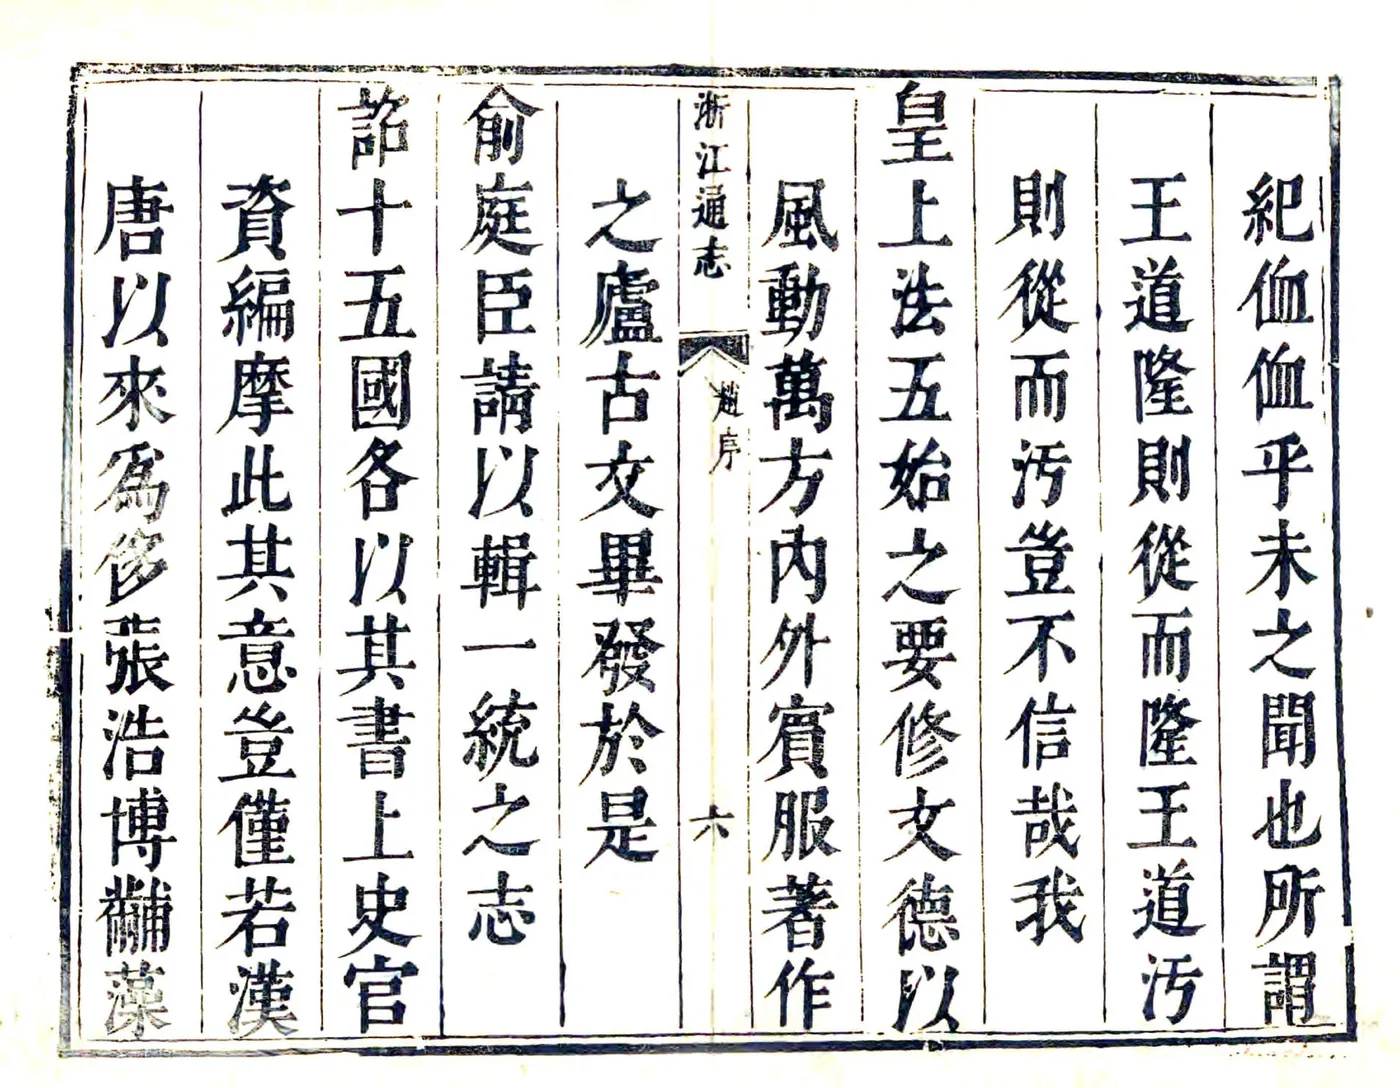 紀侐侐乎未之聞也所謂
王道隆則從而隆王道汚
則從而汚豈不信哉我
皇上法五始之要修文德以
風動萬方內外賓服著作
之廬古文畢發於是
浙江通志
趙序
六
俞庭臣請以輯一統之志
詔十五國各以其書上史官
資編摩此其意豈僅若漢
唐以來爲侈張浩博黼藻